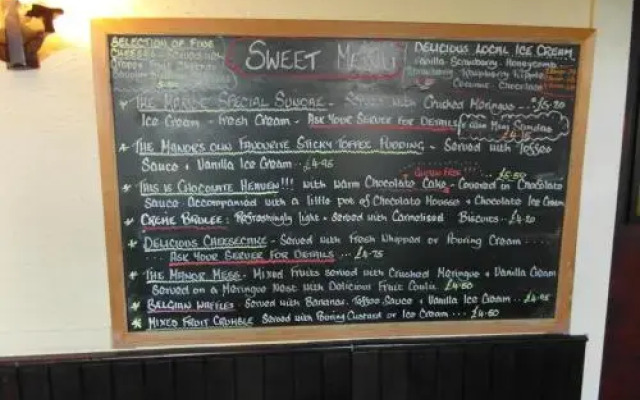 SELECTION OF FINE
CHEESES
SWEET MENU
DELICIOUS LOCAL ICE CREAM
Vanilla Strawberry Honeycomb
Strawberry Raspberry Ripple
Coconut Chocolate
THE MANOR SPECIAL SUNDAE - Served with Crushed Meringue .. £5.20
Ice Cream - Fresh Cream - ASK YOUR SERVER FOR DETAILS
Mini Sundae
THE MANORS OWN FAVOURITE STICKY TOFFEE PUDDING - Served with Toffee
Sauce + Vanilla Ice Cream .. £4.95
GLUTEN FREE!!!
£5.50
THIS IS CHOCOLATE HEAVEN!!! with warm Chocolate Cake - Covered in Chocolate
Sauce Accompanied with a little pot of Chocolate Mousse + Chocolate Ice Cream
CREME BRULEE: Refreshingly light + Served with Caramelised Biscuits .. £4.20
DELICIOUS CHEESECAKE - Served with Fresh Whipped or Pouring Cream ....
... ASK YOUR SERVER FOR DETAILS ... £4.75
THE MANOR MESS - Mixed Fruits served with Crushed Meringue + Vanilla Cream
Served on a Meringue Nest with Delicious Fruit Coulis £4.50
BELGIAN WAFFLES - Served with Bananas, Toffee Sauce + Vanilla Ice Cream .. £4.95
MIXED FRUIT CRUMBLE Served with Pouring Custard or Ice Cream ... £4.50